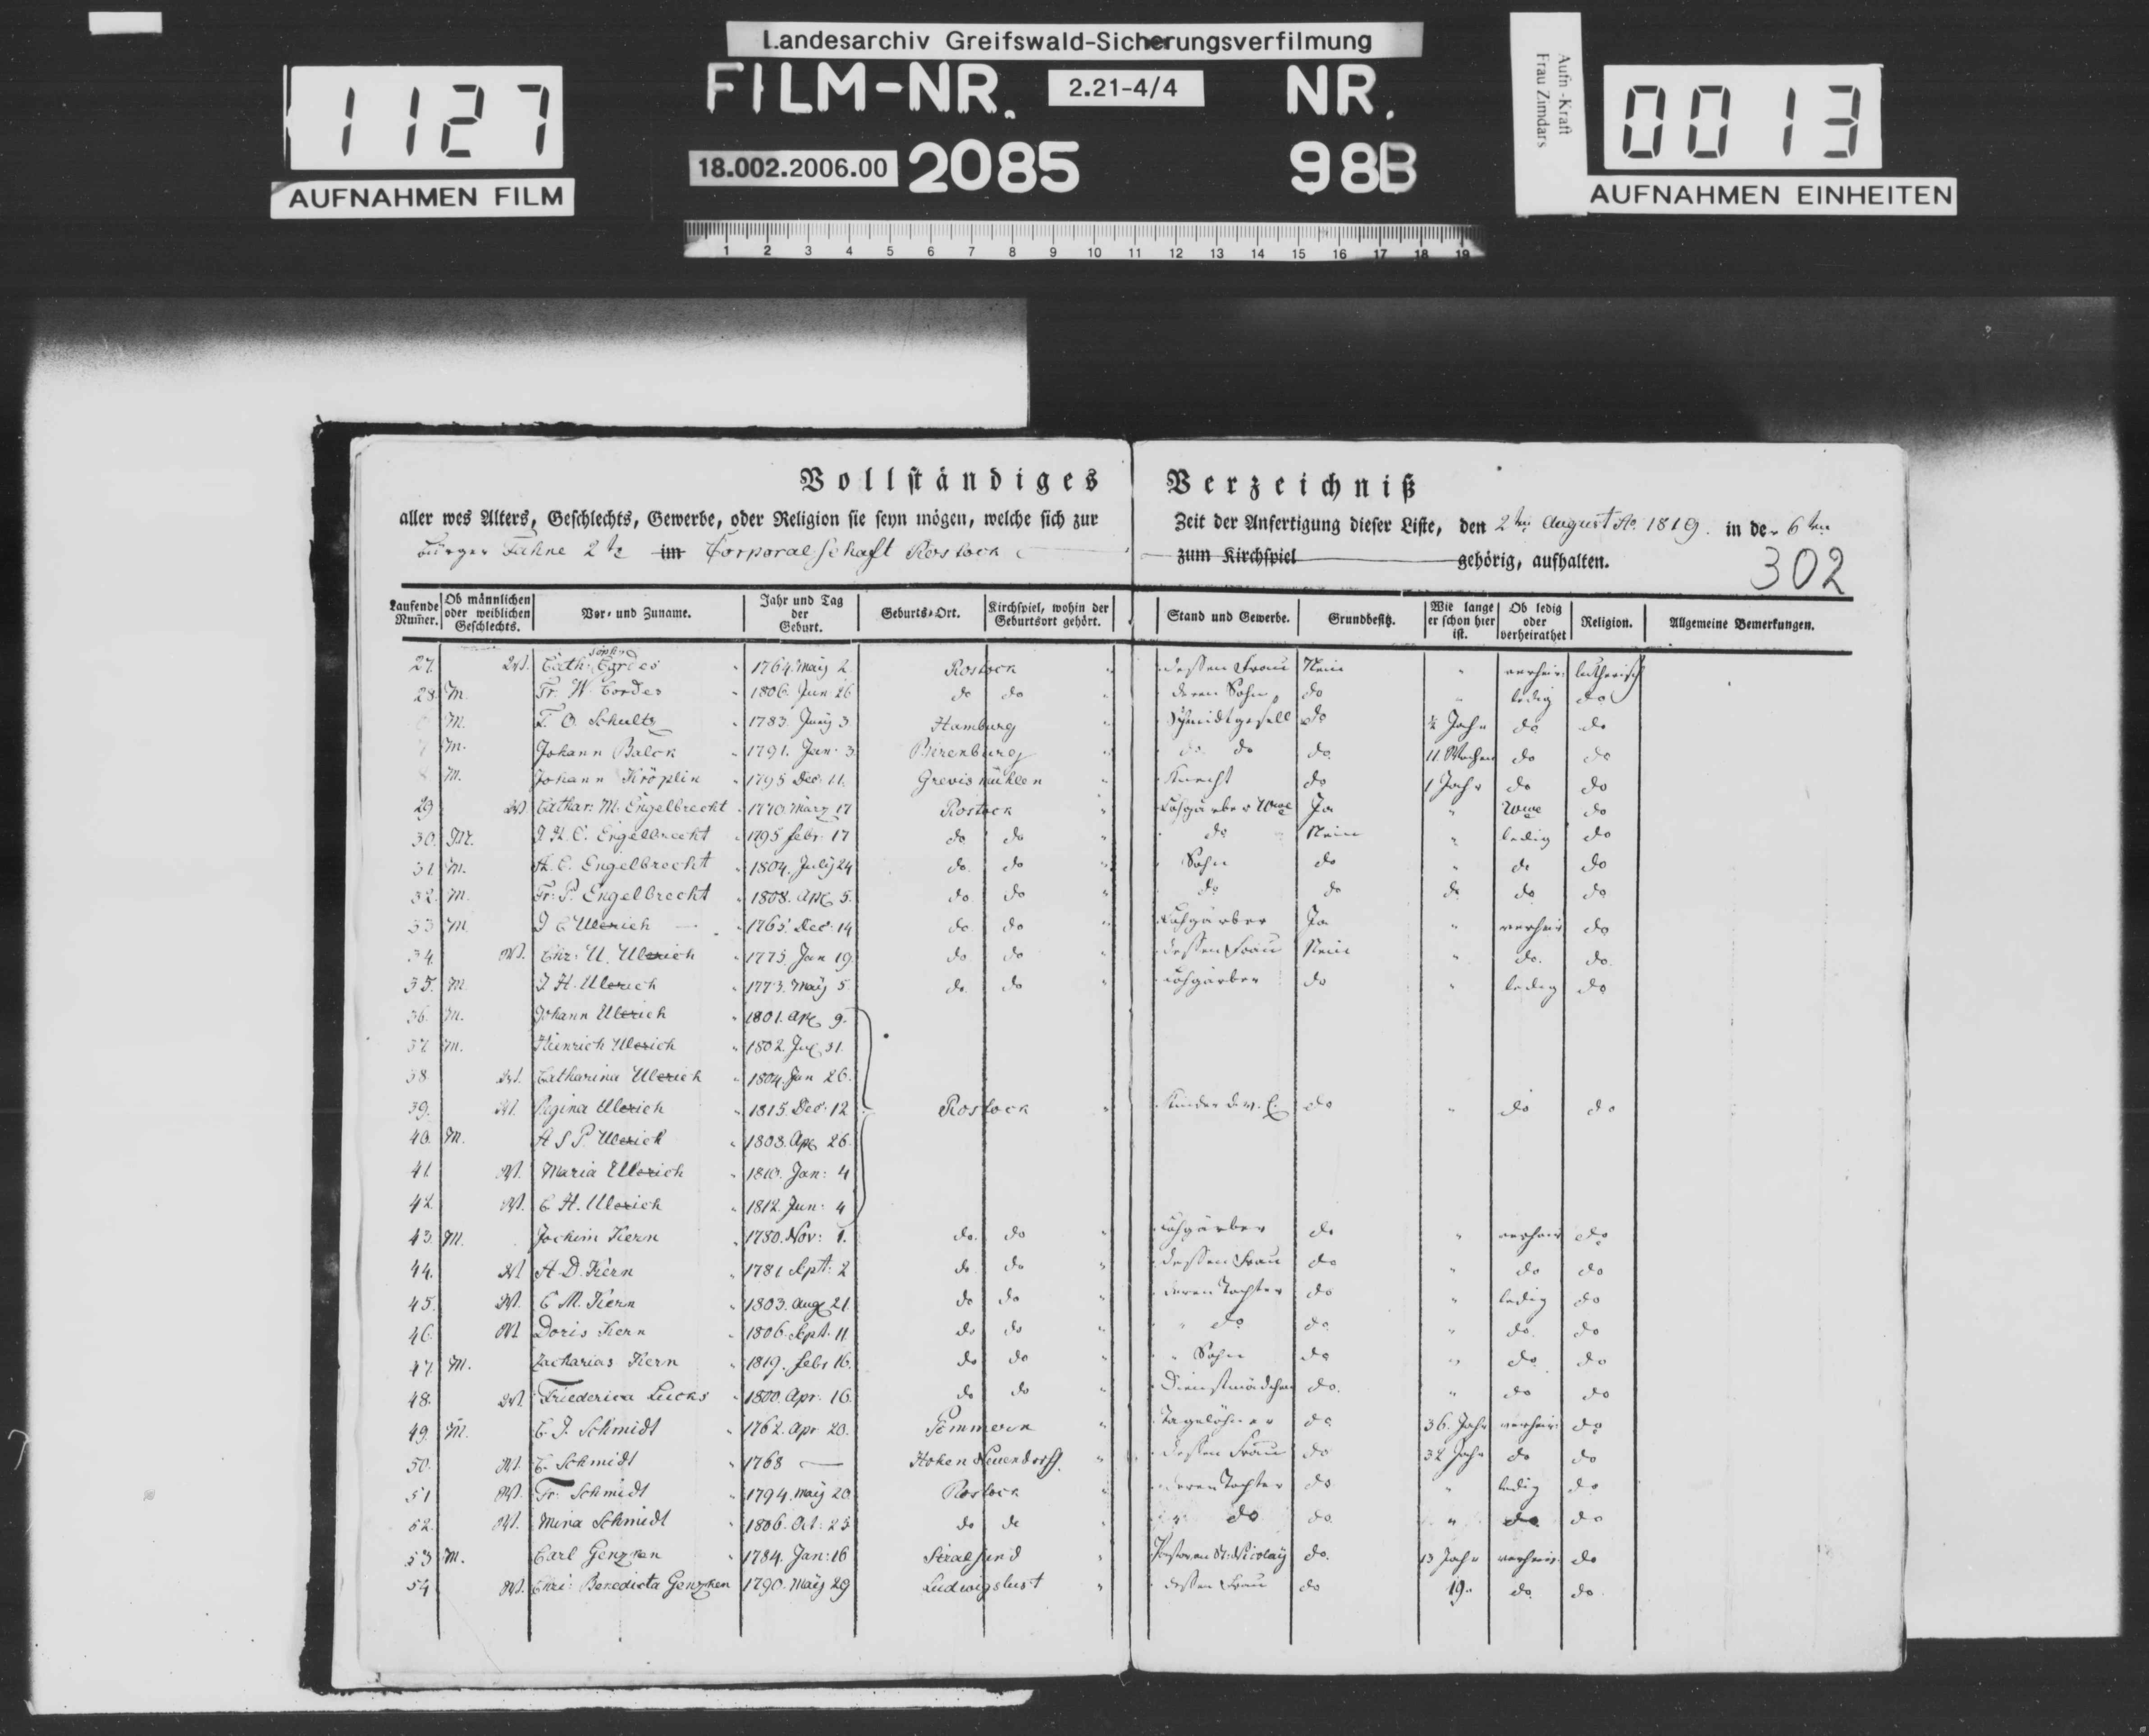 Landesarchiv Greifswald-Sicherungsverfilmung
1127
AUFNAHMEN FILM
FILM-NR. 2.21-4/4 NR.
18.002.2006.00 2085 98B
Aufn.-Kraft
Frau Zimdars
0013
AUFNAHMEN EINHEITEN
1 2 3 4 5 6 7 8 9 10 11 12 13 14 15 16 17 18 19
Vollständiges Verzeichniß
aller wes Alters, Geschlechts, Gewerbe, oder Religion sie seyn mögen, welche sich zur Zeit der Anfertigung dieser Liste, den 2ten August Ao 1819. in der 6ten
Bürger Fahne 2te im Corporalschaft Rostock zum Kirchspiel gehörig, aufhalten.
302
Laufende Numer. Ob männlichen oder weiblichen Geschlechts. Vor- und Zuname. Jahr und Tag der Geburt. Geburts-Ort. Kirchspiel, wohin der Geburtsort gehört. Stand und Gewerbe. Grundbesitz. Wie lange er schon hier ist. Ob ledig oder verheirathet Religion. Allgemeine Bemerkungen.
27. W. Cath: Cordes " 1764. Maÿ 2 Rostock " dessen Frau Nein " verheir: lutherisch
28. M. Fr. W. Cordes " 1806. Jun: 26 do do " deren Sohn do " ledig do
M. F. O. Schultz " 1783. Junÿ 3 Hamburg " Schmidtgesell do ½ Jahr do do
M. Johann Balck " 1791. Jan: 3 " do do do 11 Wochen do do
M. Johann Kröplin " 1795 Dec: 11. Grevismühlen " Knecht do 1 Jahr do do
29 W. Cathar: M. Engelbrecht " 1770. März 17 Rostock " Lohgärber Wwe Ja " Wwe do
30. M. J. H. C. Engelbrecht " 1795 febr: 17 do do " do Nein " ledig do
31 M. H. C. Engelbrecht " 1804. Julÿ 24 do do " Sohn do " do do
32. M. Fr. P. Engelbrecht " 1808. Apr 5. do do " do do do do do
33 M. J C Ulerich " 1765. Dec: 14 do do " Lohgärber Ja " verheir do
34. W. Chr. U. Ulerich " 1775. Jan 19. do do " dessen Frau Nein " do. do.
35. M. J H. Ulerich " 1773. Maÿ 5. do do " Lohgärber do " ledig do
36. M. Johann Ulerich " 1801. Apr 9.
37. M. Heinrich Ulerich " 1802. Jul 31.
38 W. Catharina Ulerich " 1804. Jan 26.
39. W. Regina Ulerich " 1815. Dec: 12 Rostock " Kinder do " do do
40. M. H S P. Ulerich " 1808. Apr 26.
41 W. Maria Ulerich " 1810. Jan: 4
42. W. C H. Ulerich " 1812. Jun: 4
43. M. Jochim Kern " 1780. Nov: 1. do. do " Lohgärber do " verheir do
44. W. A. D. Kern " 1781 Sept: 2 do. do " dessen Frau do " do do
45. W. C M. Kern " 1803. Aug 21. do do " deren Tochter do " ledig do
46. W. Doris Kern " 1806. Sept. 11 do do " " do do " do. do
47. M. Zacharias Kern " 1819. febr 16. do do " " Sohn do " do do
48. W. Friederica Lucks " 1800. Apr. 16. do do " Dienstmädchen do. " do do
49. M. C. J. Schmidt " 1762. Apr 20. Pommern " Tagelöhner do 36. Jahr verheir: do
50. W. C. Schmidt " 1768 Hohen Neuendorff " dessen Frau do 32 Jahr do do
51 W. Fr. Schmidt " 1794. Maÿ 20 Rostock deren Tochter do " ledig do
52. W. Mina Schmidt " 1806. Oct: 23 do do " do do. " do do
53 M. Carl Genzken " 1784. Jan: 16 Stralsund " Pastor an St: Nicolaÿ do. 13 Jahr verheir. do
54 W. Benedicta Genzken 1790. Maÿ 29 Ludwigslust " dessen Frau do 19. do do